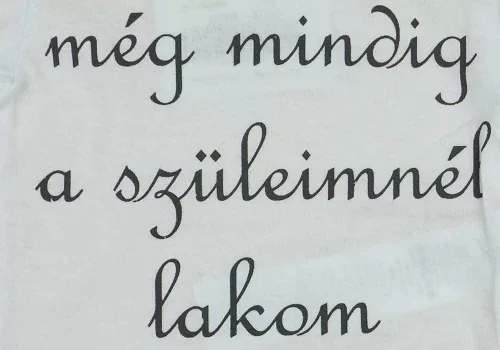 még mindig
a szüleimnél
lakom